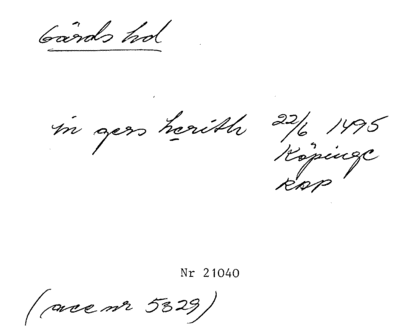 Gärds hd
in gers herith 22/6 1495
Köpinge
RAP
Nr 21040
(acc nr 5329)